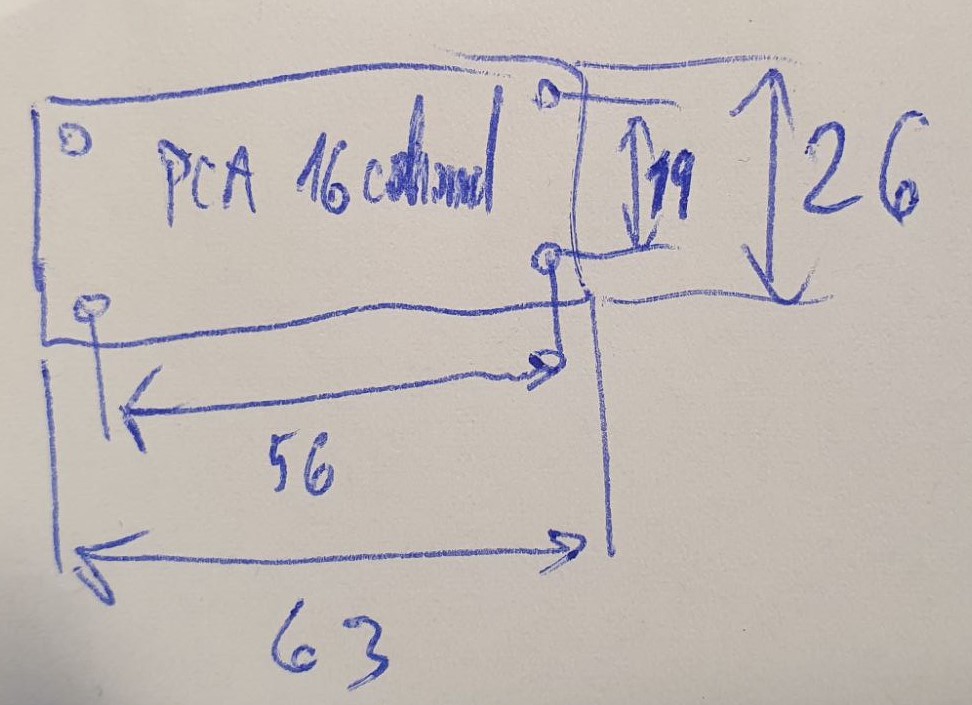 PCA 16 cahnnel
19
26
56
63